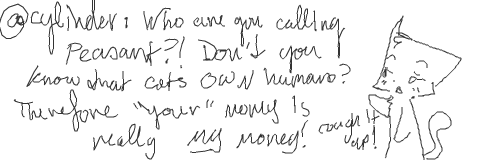 @cylinder: Who are you calling
Peasant?! Don't you
know that cats OWN humans?
Therefore "your" money is
really my money! cough it
up!